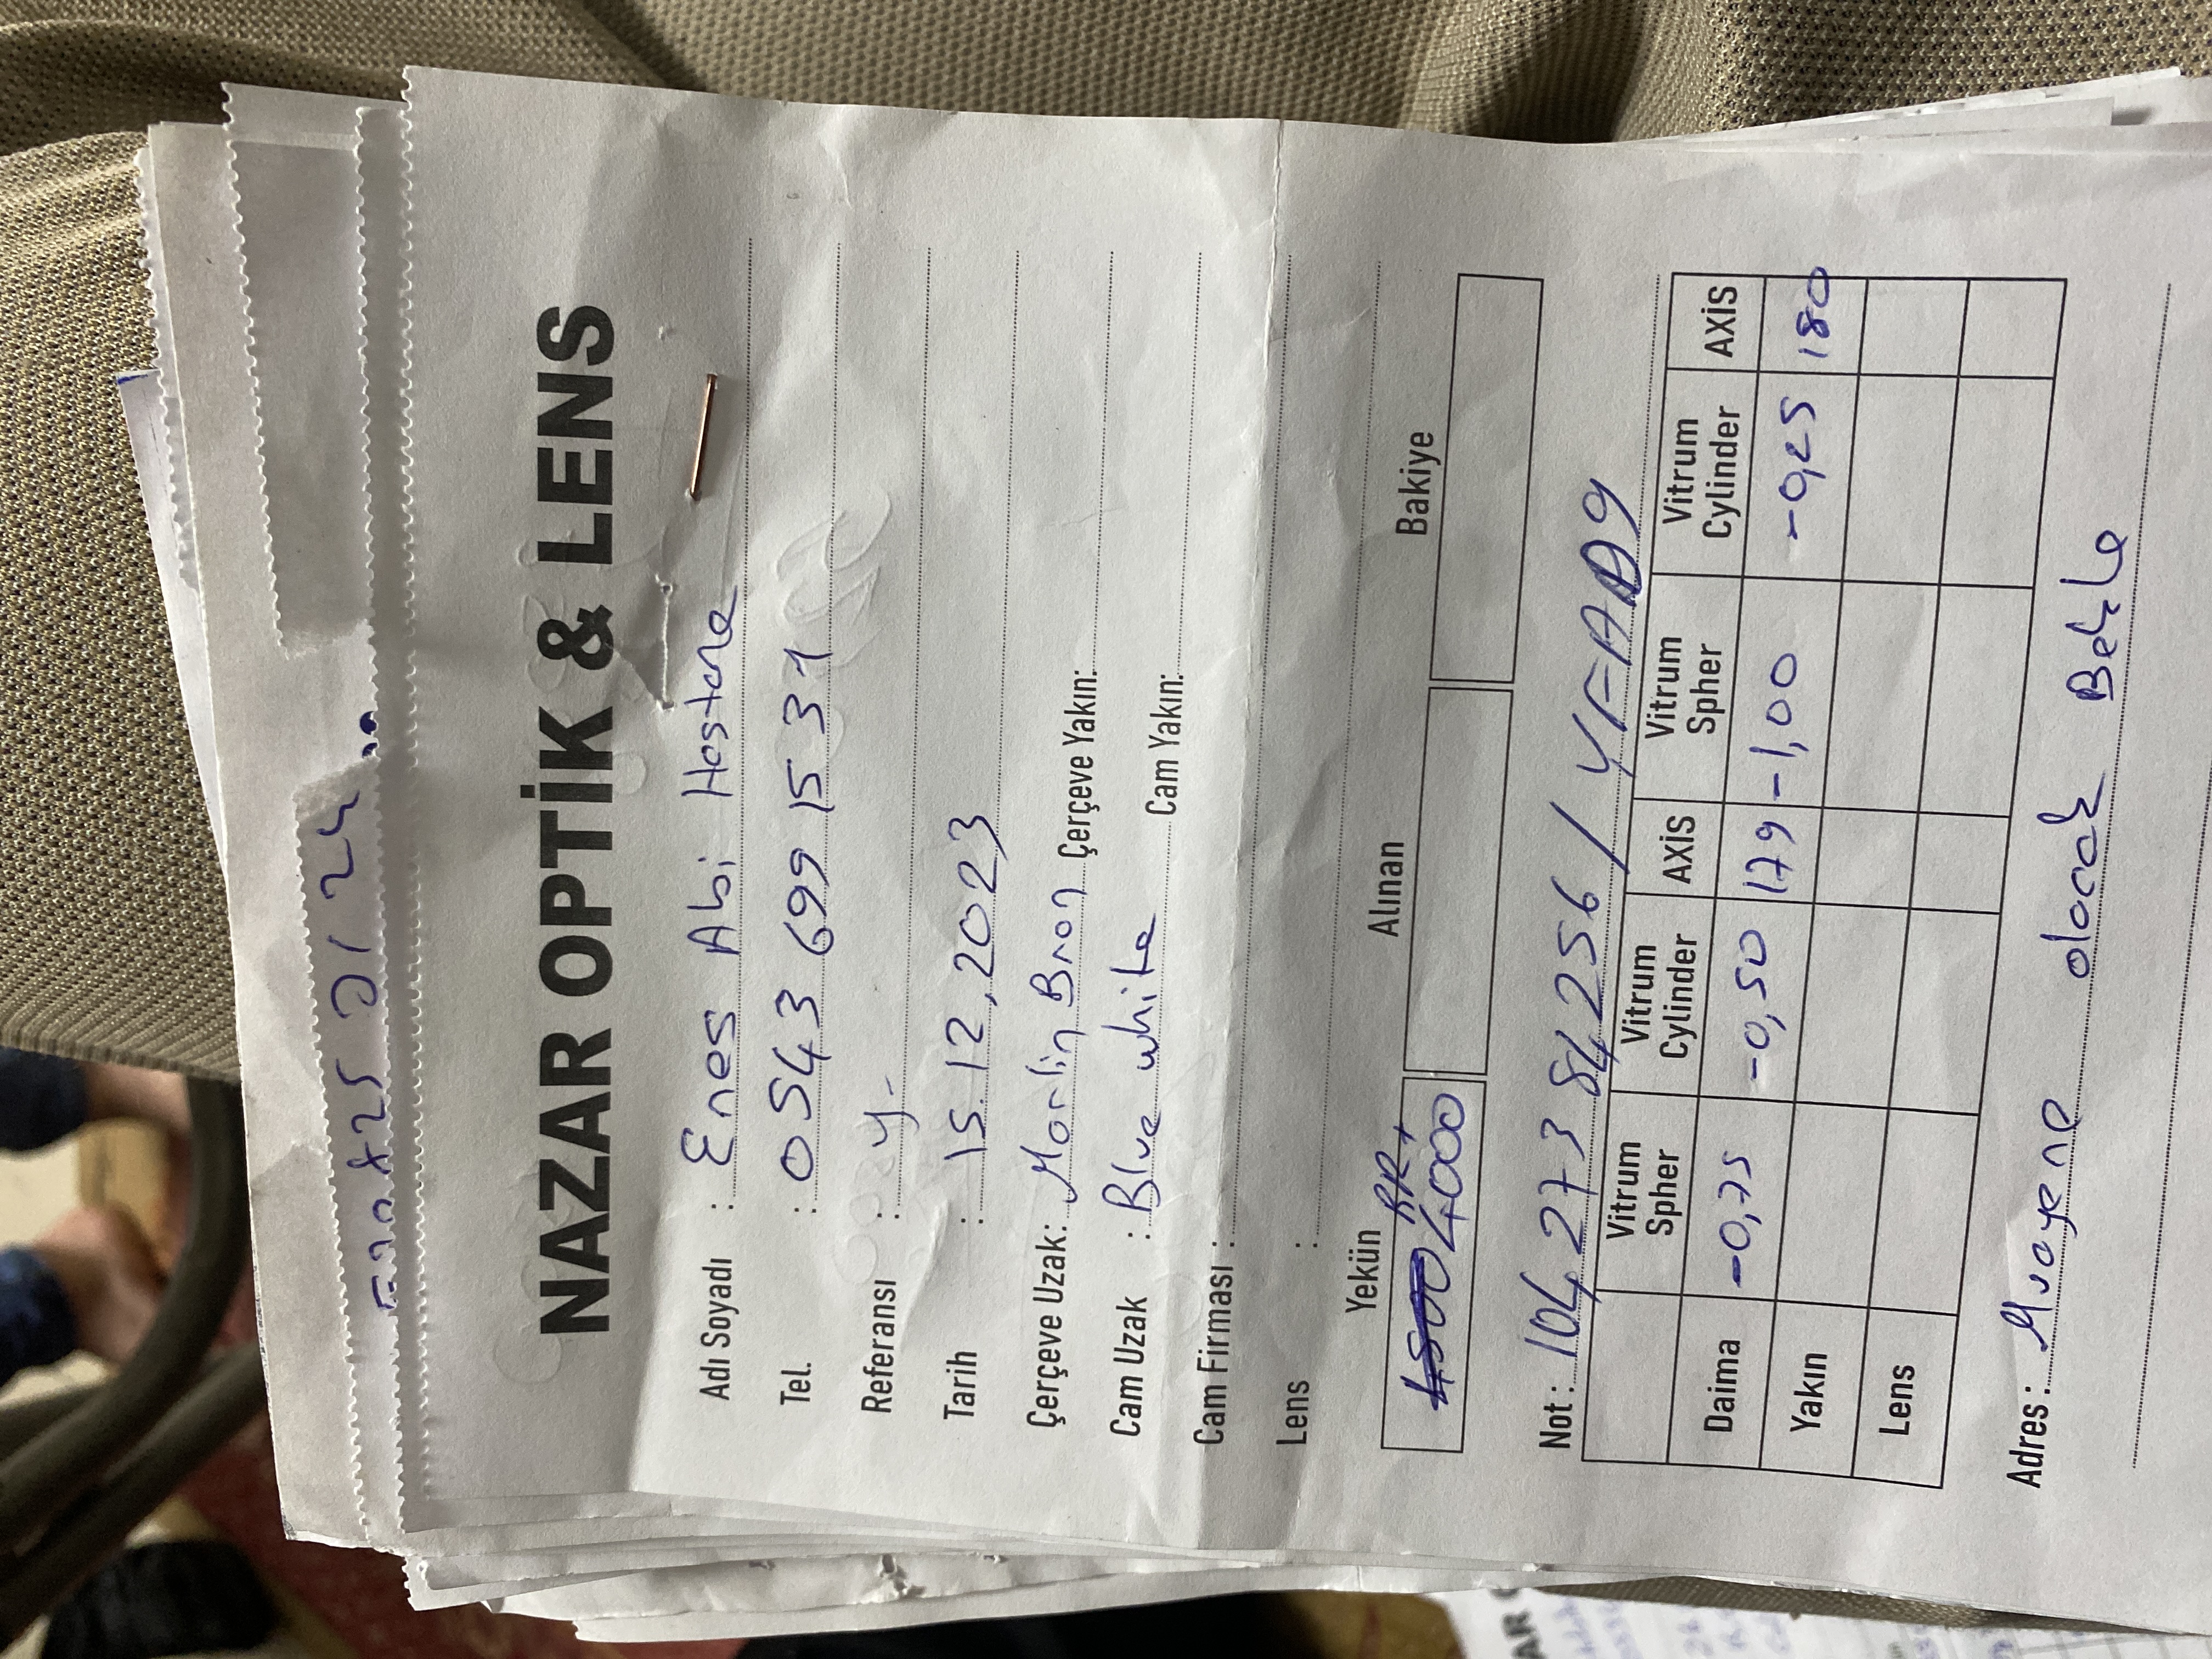 NAZAR OPTİK & LENS
Adı Soyadı : Enes Abi Hastane
Tel. : 0543 699 15 31
Referansı : y-
Tarih : 15.12.2023
Çerçeve Uzak: Marlin Bron Çerçeve Yakın:
Cam Uzak : Blue white Cam Yakın:
Cam Firması :
Lens :
Yekün Alınan Bakiye
RR+
4500 4000
Not : 104 273 84256 / YFAD9
Vitrum Spher Vitrum Cylinder AXİS Vitrum Spher Vitrum Cylinder AXİS
Daima -0,75 -0,50 179 -1,00 -0,25 180
Yakın
Lens
Adres : Muayene olacak Bekle